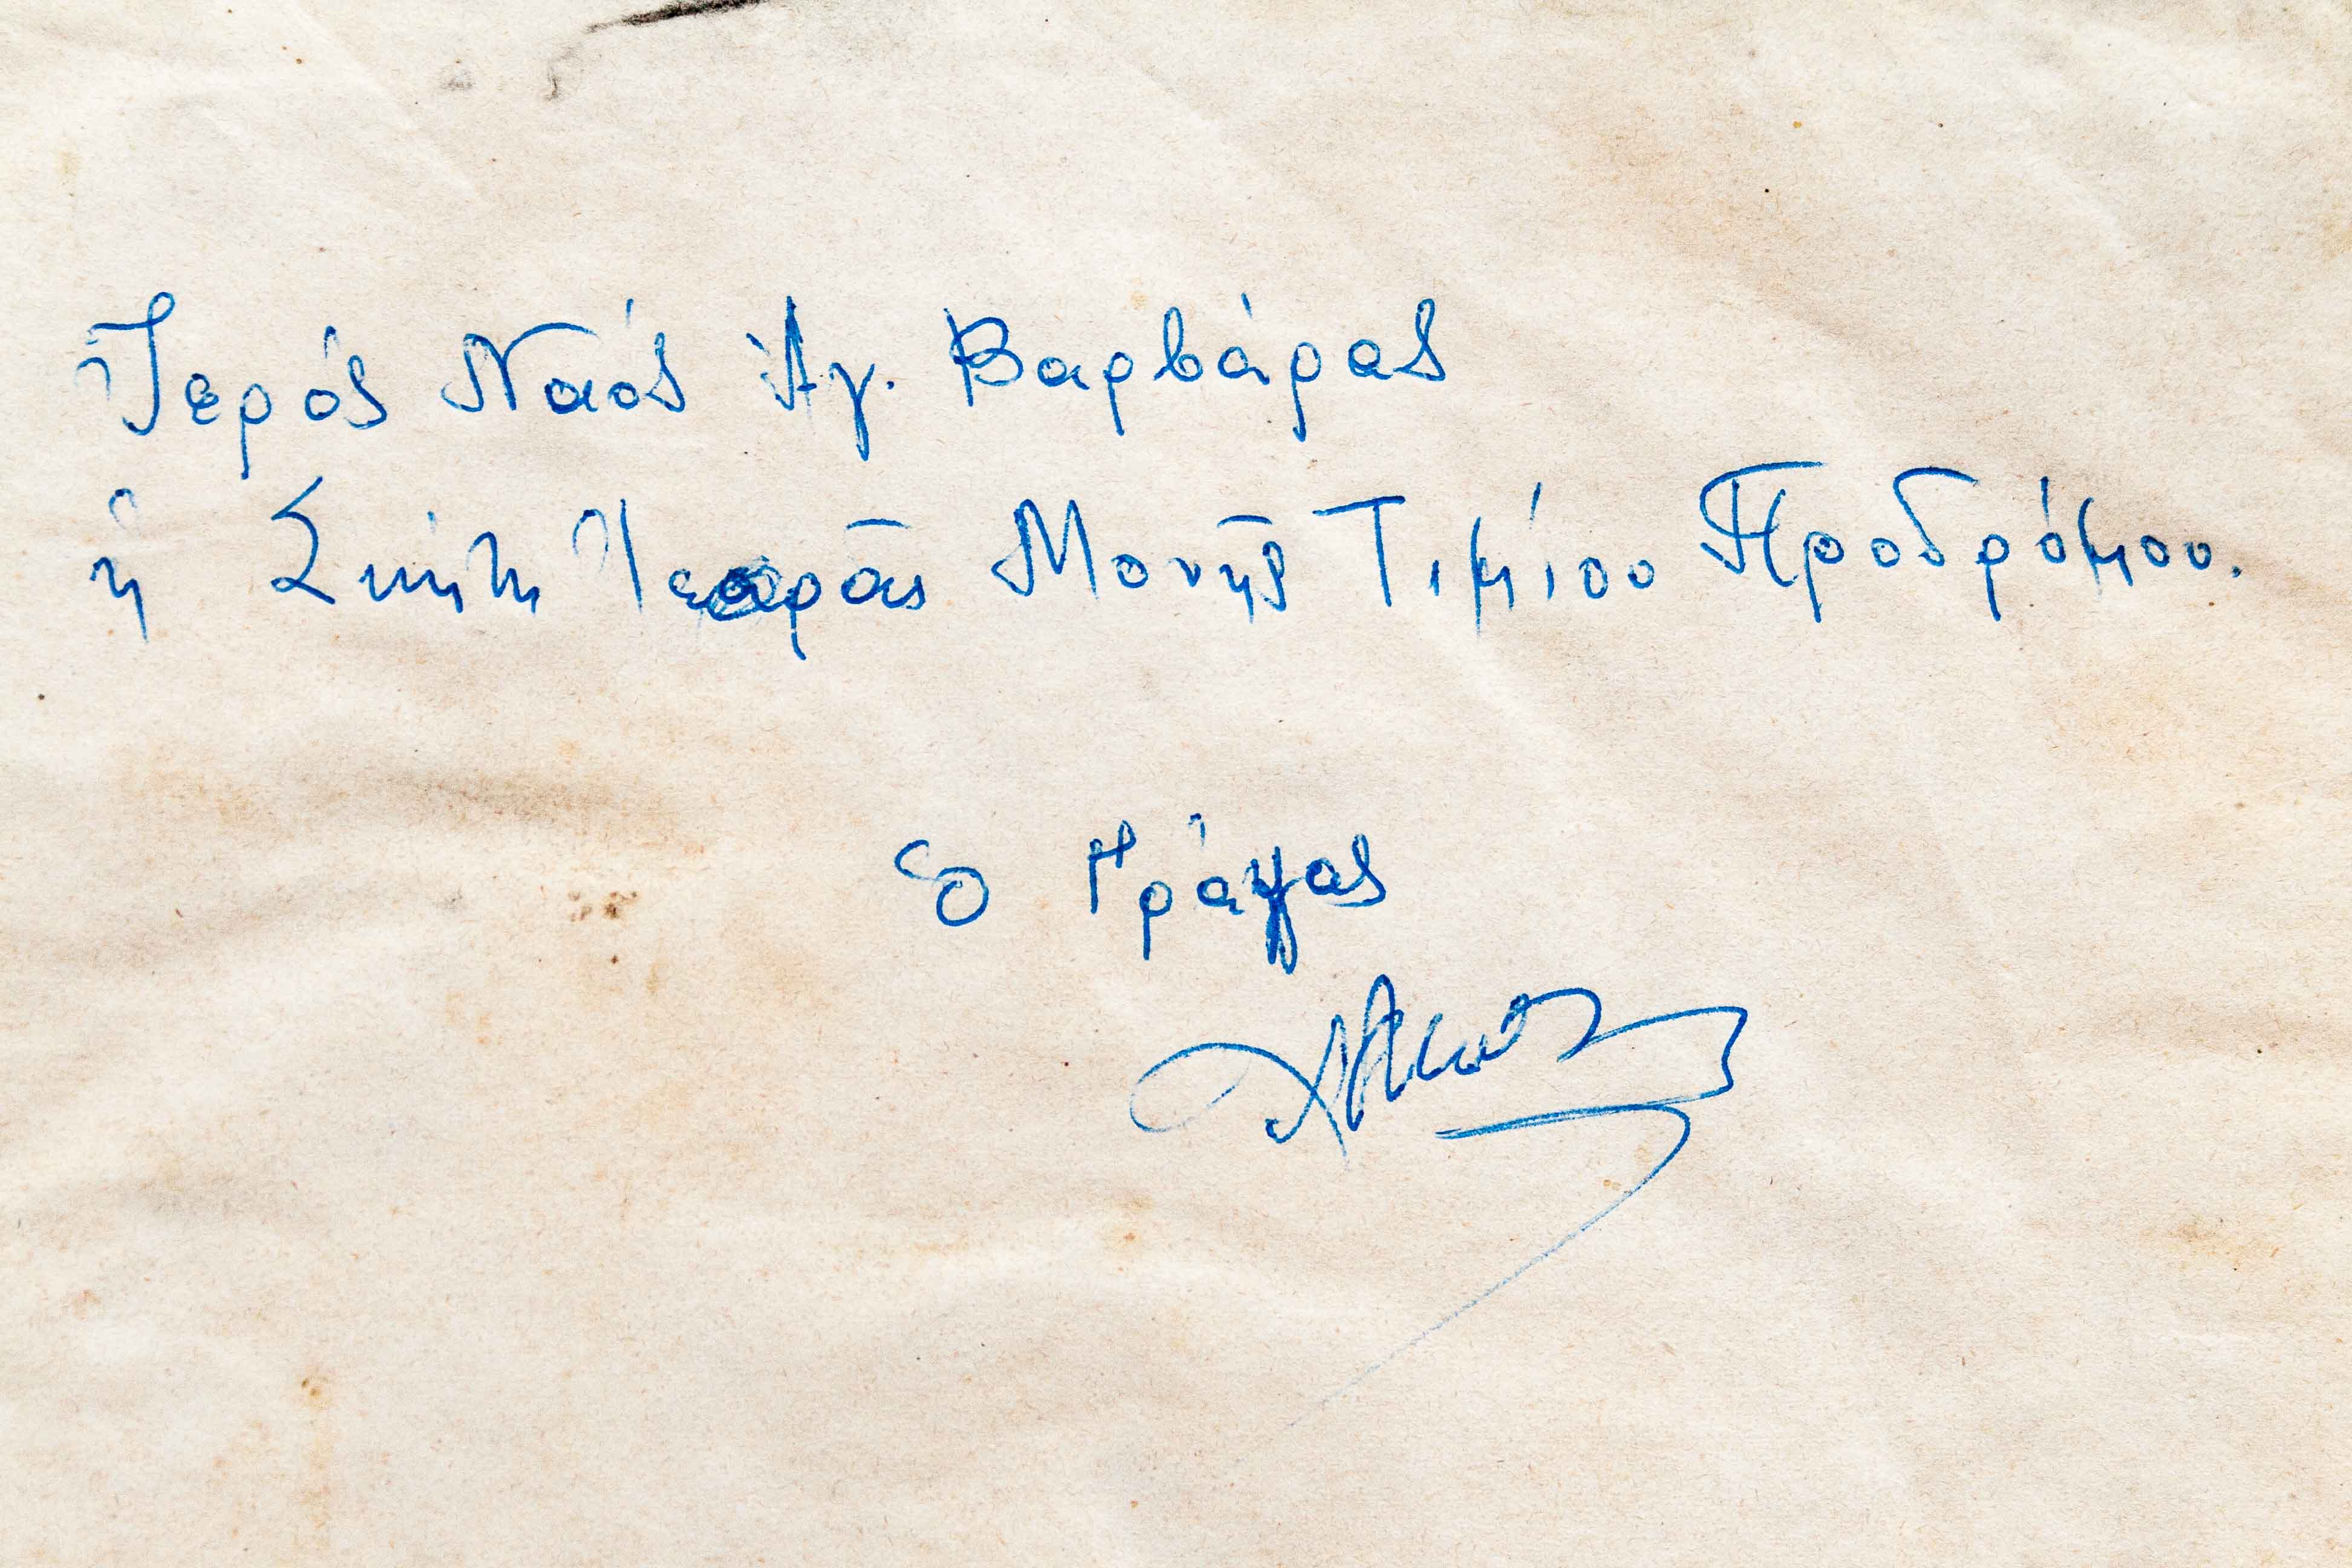 Ἱερός Ναός Ἁγ. Βαρβάρας
ἡ Σκήτη Ἱερᾶς Μονῆς Τιμίου Προδρόμου.
Ὁ Γράψας